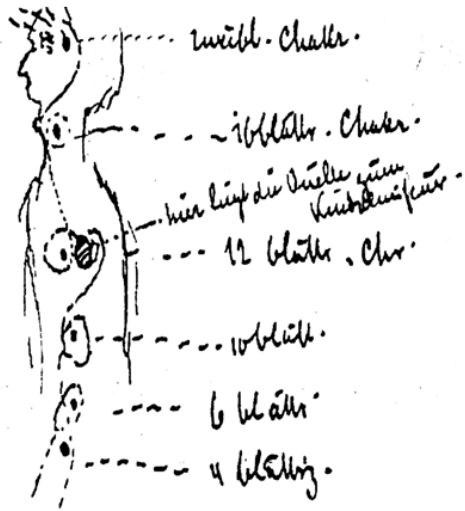 zweibl. Chakr.
16blättr. Chakr.
hier liegt die Quelle zum
12 blättr. Chr.
10blätt.
6 blättr.
4 blättrig.